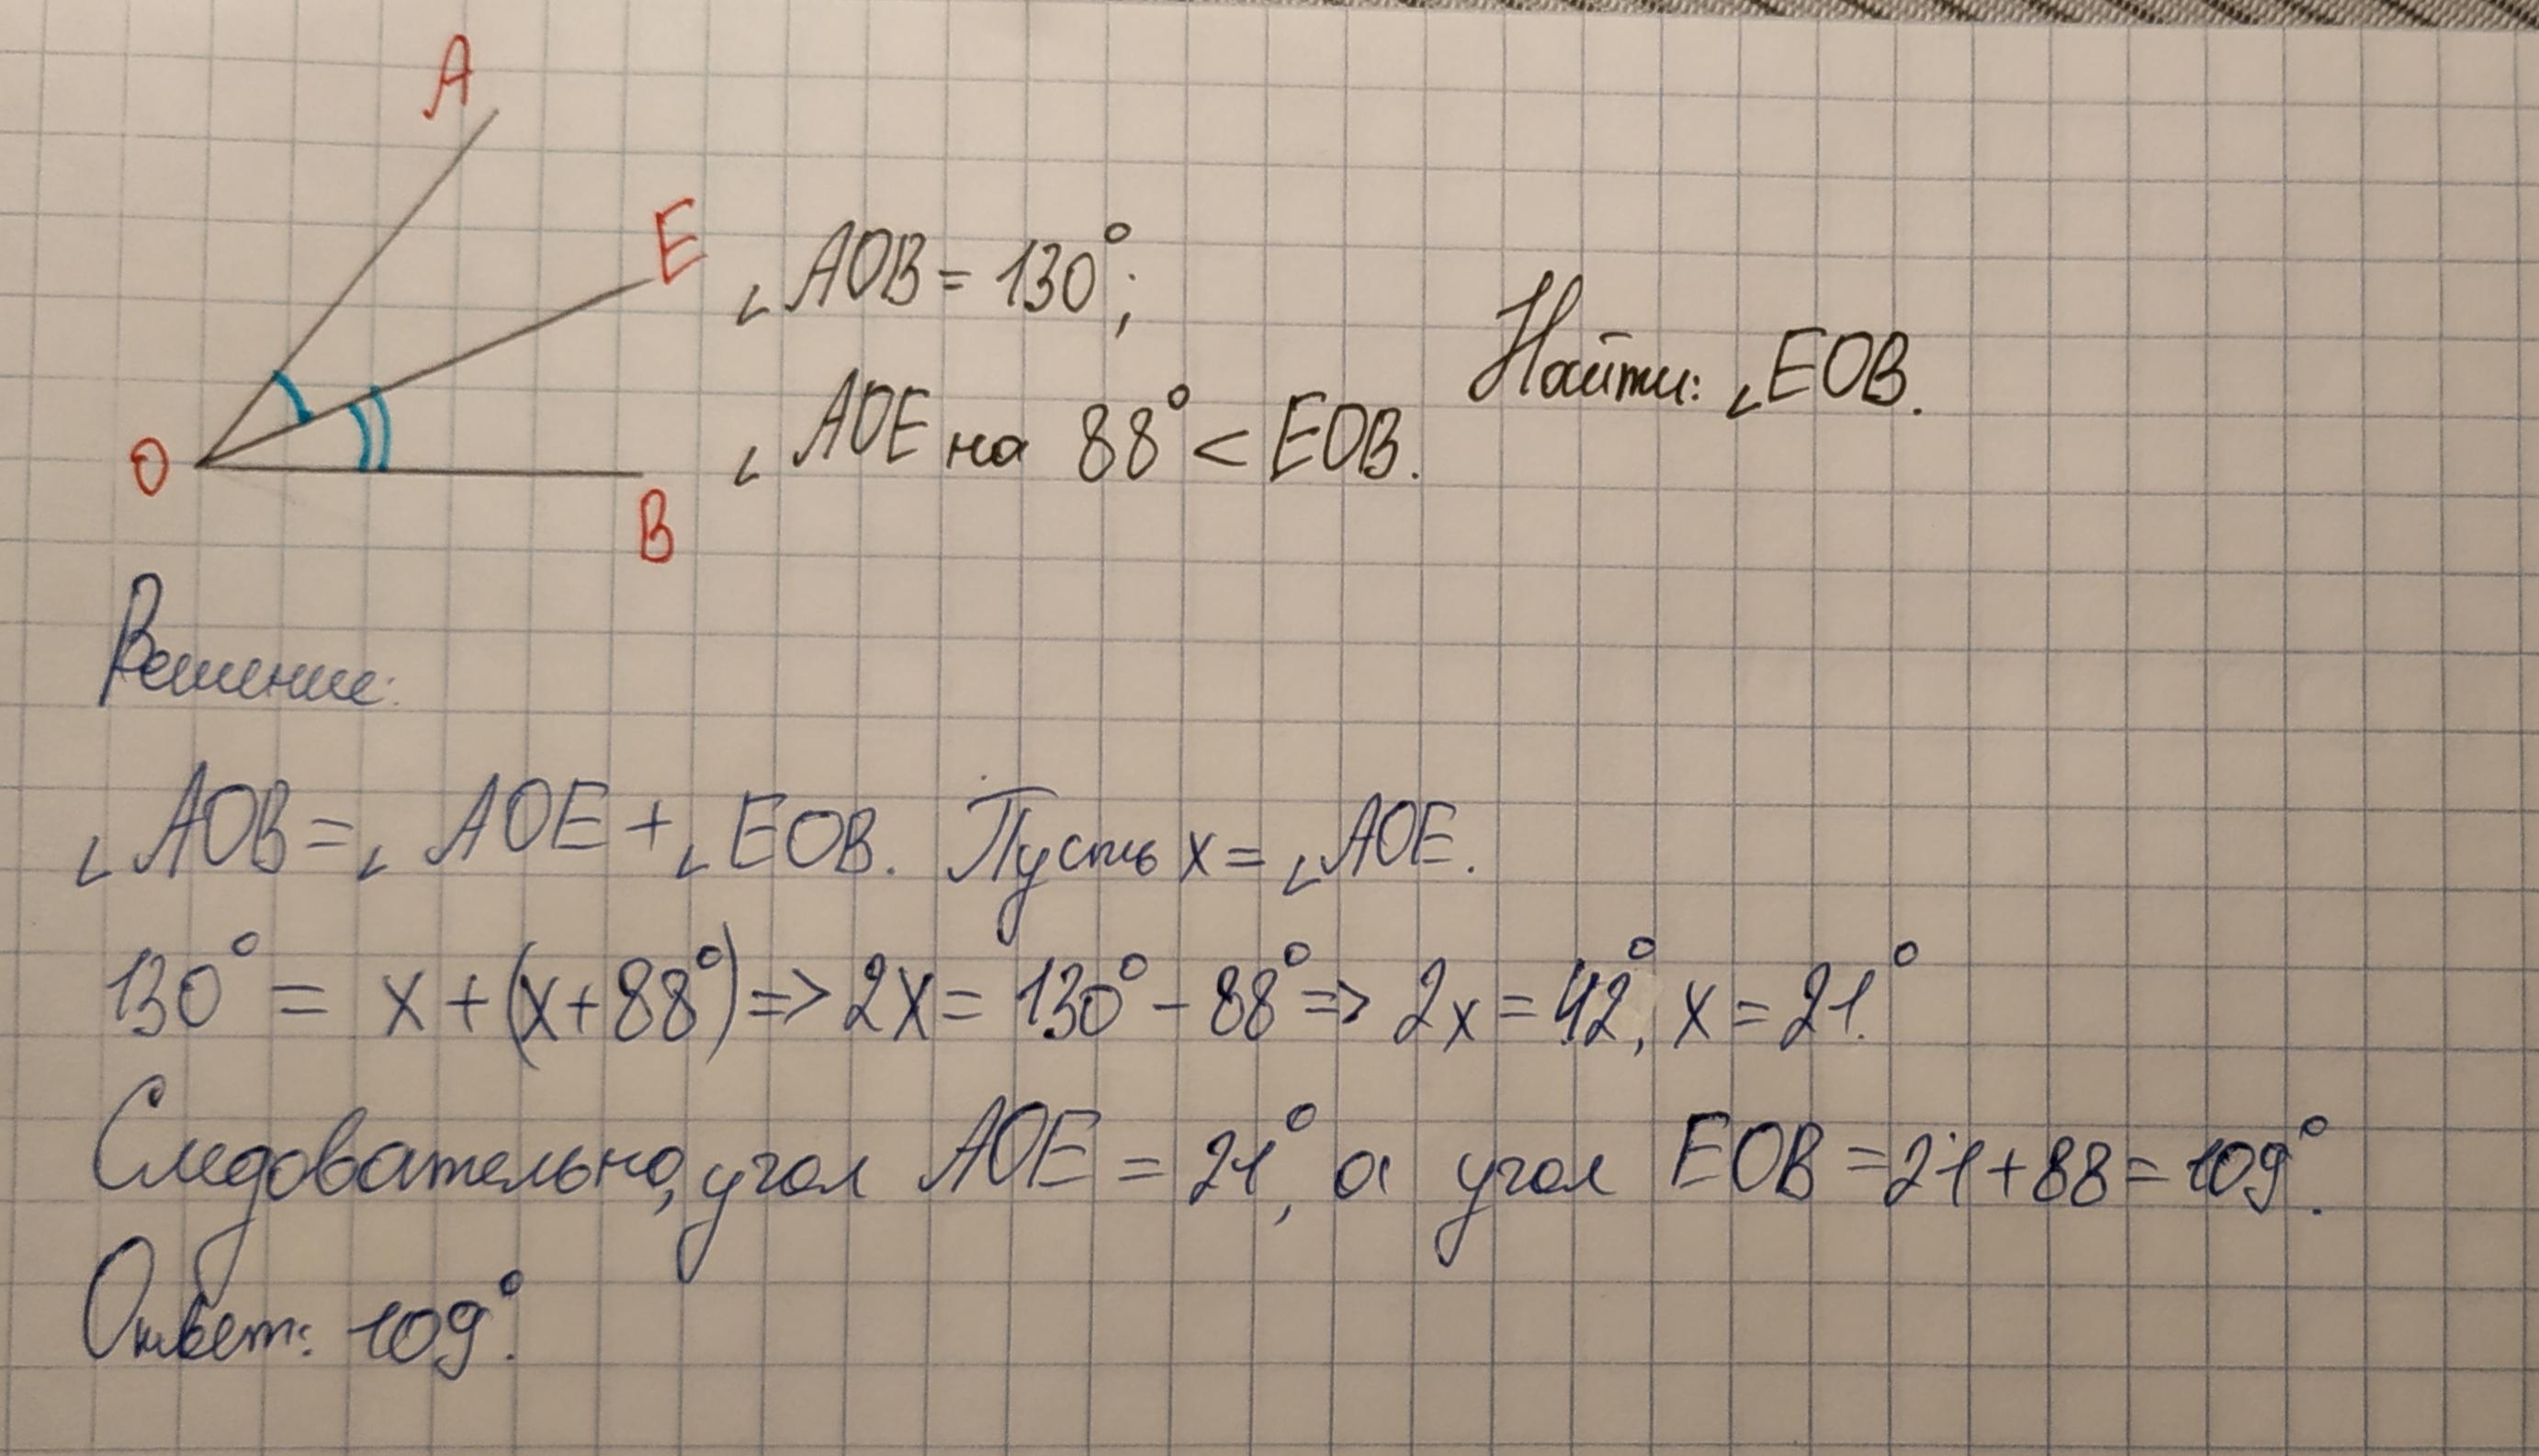 A
E
O
B
∠AOB = 130°;
∠AOE на 88° < EOB.
Найти: ∠EOB.
Решение:
∠AOB = ∠AOE + ∠EOB. Пусть x = ∠AOE.
130° = x + (x + 88°) => 2x = 130° - 88° => 2x = 42°, x = 21.°
Следовательно, угол AOE = 21°, а угол EOB = 21 + 88 = 109°.
Ответ: 109°.